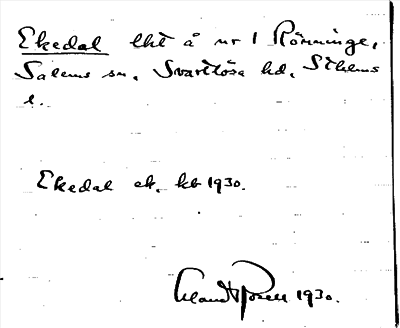 Ekedal lht å nr 1 Rönninge,
Salems sn. Svartlösa hd. Sthlms
l.
Ekedal ek. kb 1930.
1930.